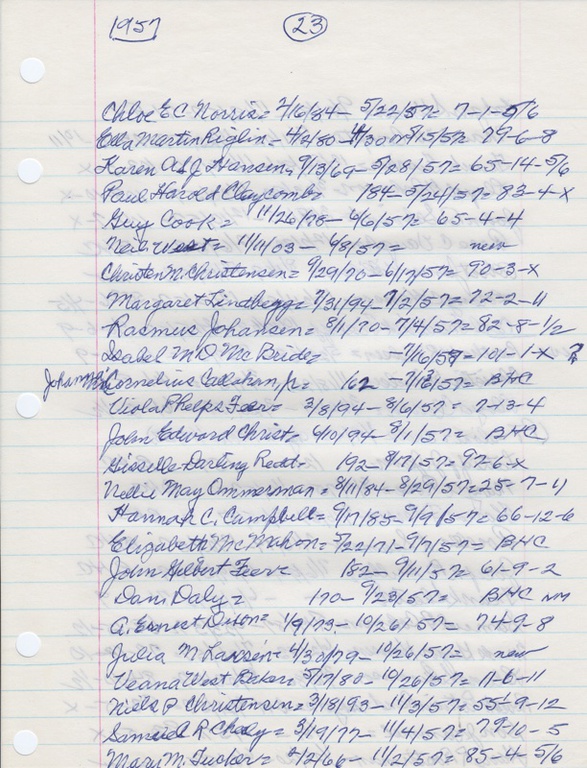 1957 23
Chloe E C Norris = 2/16/84 - 5/22/57 = 7-1-5/6
Ella Martin Riglin = 4/2/80 - 4/30 or 8/15/57 = 79-6-8
Karen A J Hansen = 9/13/69 - 5/28/57 = 65-14-5/6
Paul Harold Claycomb = 184 - 5/24/57 = 83-4-X
Guy Cook = 11/26/78 - 6/6/57 = 65-4-4
Neil West = 11/11/03 - 6/8/57 = new
Christen N. Christensen = 9/29/70 - 6/17/57 = 90-3-X
Margaret Lindbegg = 7/31/94 - 7/2/57 = 72-2-11
Rasmus Johansen = 8/1/70 - 7/4/57 = 82-8-1/2
Isabel M D McBride = - 7/16/57 = 101-1-X ?
Cornelius Callahan, Jr = 162 - 7/13/57 = BHC
Viola Phelps Feer = 3/8/94 - 8/6/57 = 7-13-4
John Edward Christ = 6/10/94 - 8/1/57 = BHC
Gisselle Darling Redt = 192 - 8/17/57 = 97-6-X
Nellie May Ommerman = 8/11/84 - 8/29/57 = 25-7-11
Hannah C. Campbell = 9/17/85 - 9/9/57 = 66-12-6
Elizabeth McMahon = 5/22/71 - 9/7/57 = BHC
John Gilbert Feer = 182 - 9/11/57 = 61-9-2
Dan Daly = 170 - 9/23/57 = BHC NM
A. Ernest Dixon = 1/9/73 - 10/26/57 = 74-9-8
Julia M Larsen = 4/30/79 - 10/26/57 = new
Veana West Baker = 5/7/80 - 10/26/57 = 11-6-11
Niels P Christensen = 3/18/93 - 11/3/57 = 55-9-12
Samuel R Chady = 3/19/77 - 11/4/57 = 79-10-5
Mary M. Tucker = 2/2/66 - 11/2/57 = 85-4-5/6